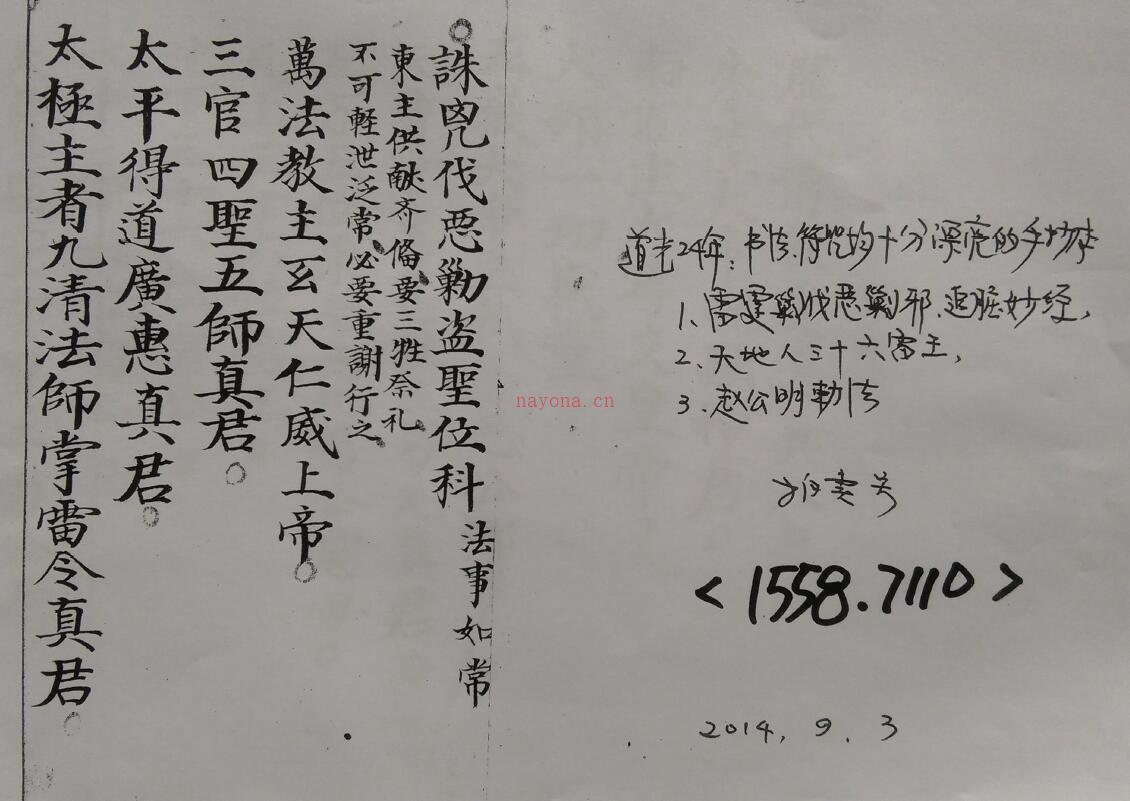 誅兇伐惡勦盗聖位科 法事如常
東主供献齐俻要三牲奈礼
不可軽泄泛常必要重謝行之
萬法教主玄天仁威上帝
三官四聖五師真君
太平得道廣惠真君
太極主者九清法師掌雷令真君
道光24年：书法、符咒均十分漂亮的手抄本
1、雷霆 伐恶剿邪、追 妙经，
2、天地人三十六雷王，
3、赵公明勅法
<1558.7110>
2014，9．3
nayona.cn